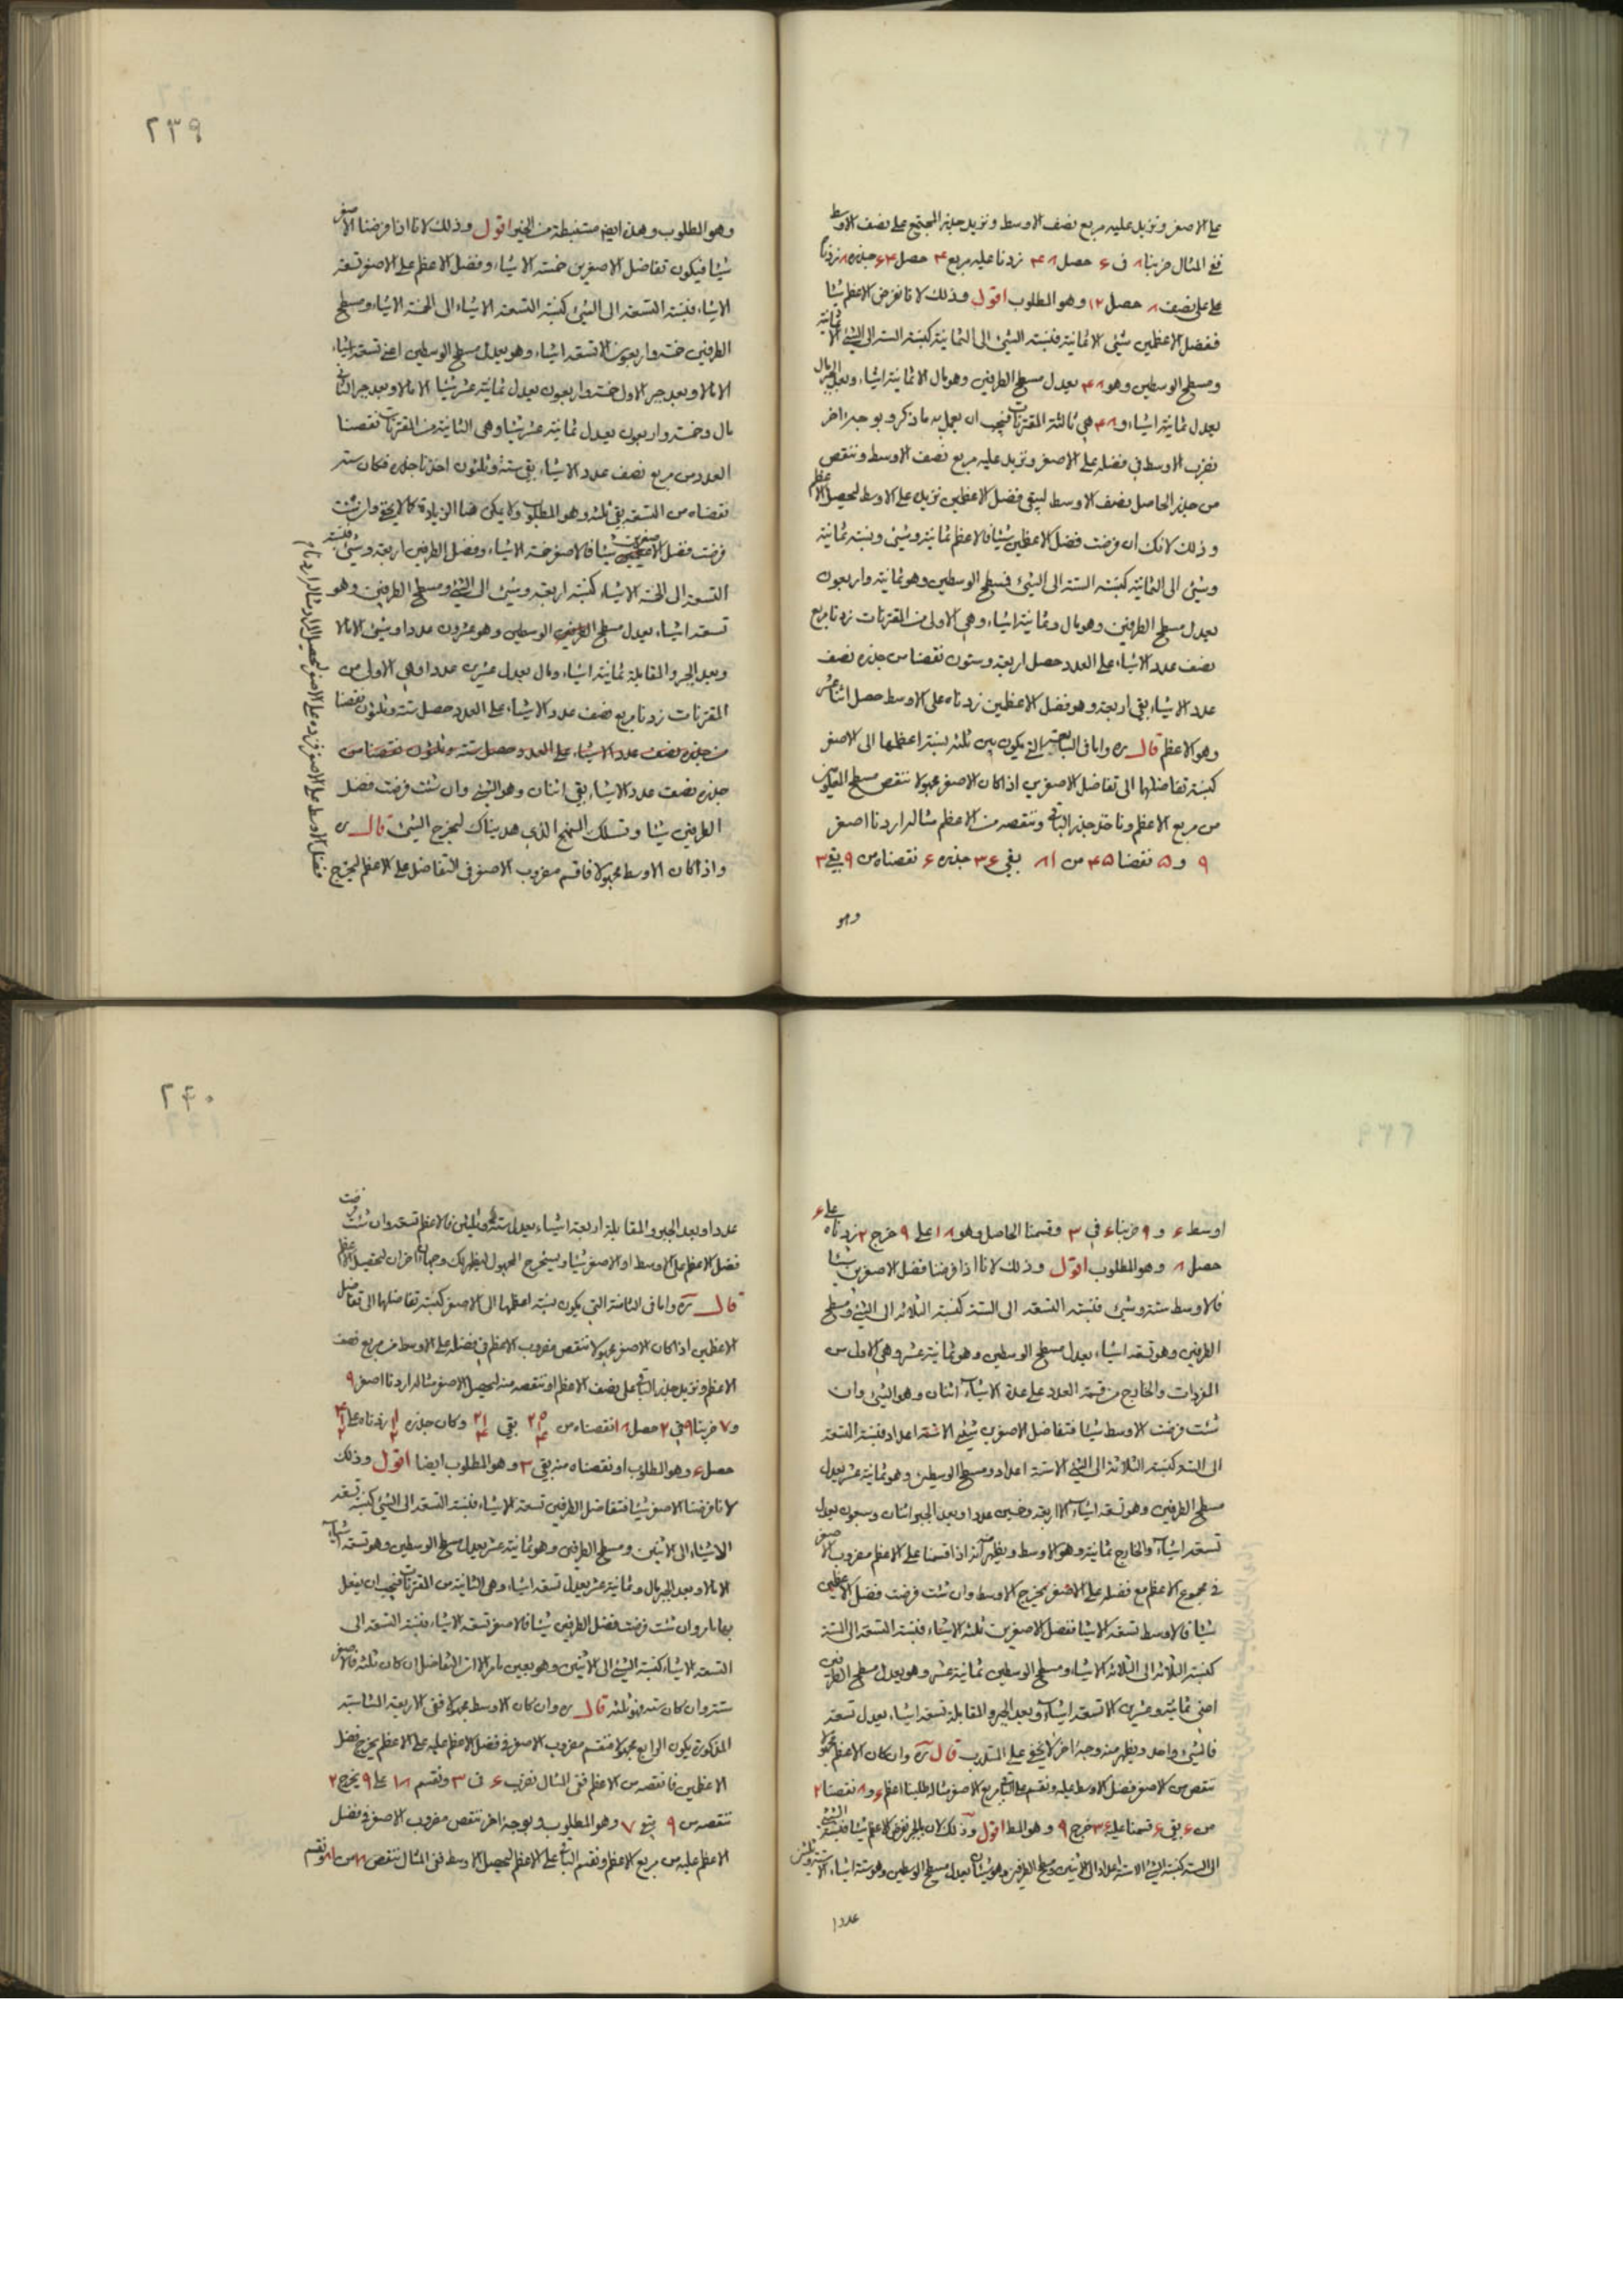 على الاصغر ونزيد عليه مربع نصف الاوسط ونزيد جذر المجتمع على نصف الاوسط
ففي المثال ضربنا ۸ ف ۶ حصل ۴۸ زدنا عليه مربع ۴ حصل ۶۴ جذره ۸ زدنا
على نصف ۸ حصل ۱۲ وهو المطلوب اقول وذلك لانا نفرض الاعظم شيئا
ففضل الاعظمين شئ الا ثمانية فنسبة الشئ الى الثمانية كنسبة الستة الى الشئ الا ثمانية
ومسطح الوسطين وهو ۴۸ يعدل مسطح الطرفين وهو مال الا ثمانية اشياء وبعد الجبر مال
يعدل ثمانية اشياء و ۴۸ هي ثالثة المقترنات فيجب ان يعمل به ما ذكر وبوجه اخر
نضرب الاوسط في فضله على الاصغر ونزيد عليه مربع نصف الاوسط وننقص
من جذر الحاصل نصف الاوسط ليبقى فضل الاعظمين نزيد على الاوسط ليحصل الاعظم
وذلك لانك ان فرضت فضل الاعظمين شيئا فالاعظم ثمانية وشئ ونسبة ثمانية
وشئ الى الثمانية كنسبة الستة الى الشئ فمسطح الوسطين وهو ثمانية واربعون
يعدل مسطح الطرفين وهو مال وثمانية اشياء وهي الاولى من المقترنات زدنا مربع
نصف عدد الاشياء على العدد حصل اربعة وستون نقصنا من جذره نصف
عدد الاشياء بقى اربعة وهو فضل الاعظمين زدناه على الاوسط حصل اثنا عشر
وهو الاعظم قال ره واما في السابعة التي يكون بين ثلثة نسبة اعظمها الى الاصغر
كنسبة تفاضلها الى تفاضل الاصغرين اذا كان الاصغر مجهولا ننقص مسطح المعلومين
من مربع الاعظم وناخذ جذر الباقي وننقصه من الاعظم مثاله اردنا اصغر
۹ و ۵ نقصنا ۴۵ من ۸۱ بقى ۳۶ جذره ۶ نقصناه من ۹ بقى ۳
وهو
۲۳۹
وهو المطلوب وهذه ايضا مستنبطة من الجبر اقول وذلك لانا اذا فرضنا الاصغر
شيئا فيكون تفاضل الاصغرين خمسة الا شيئا وفضل الاعظم على الاصغر تسعة
الا شيئا فنسبة التسعة الى الشئ كنسبة التسعة الا شيئا الى الخمسة الا شيئا ومسطح
الطرفين خمسة واربعون الا تسعة اشياء وهو يعدل مسطح الوسطين اعني تسعة اشياء
الا مالا وبعد جبر الاول خمسة واربعون يعدل ثمانية عشر شيئا الا مالا وبعد جبر الثاني
مال وخمسة واربعون يعدل ثمانية عشر شيئا وهي الثانية من المقترنات نقصنا
العدد من مربع نصف عدد الاشياء بقى ستة وثلثون اخذنا جذره فكان ستة
نقصناه من التسعة بقى ثلثة وهو المطلوب ولا يمكن هنا الزيادة كما لا يخفى وان شئت
فرضت فضل الاصغرين شيئا فالاصغر خمسة الا شيئا وفضل الطرفين اربعة وشئ فنسبة
التسعة الى الخمسة الا شيئا كنسبة اربعة وشئ الى الشئ ومسطح الطرفين وهو
تسعة اشياء يعدل مسطح الوسطين وهو عشرون عددا وشئ الا مالا
وبعد الجبر والمقابلة ثمانية اشياء ومال يعدل عشرين عددا وهي الاولى من
المقترنات زدنا مربع نصف عدد الاشياء على العدد حصل ستة وثلثون نقصنا
من جذره نصف عدد الاشياء على العدد حصل ستة وثلثون نقصنا من
جذره نصف عدد الاشياء بقى اثنان وهو الشئ وان شئت فرضت فضل
الطرفين شيئا وتسلك النهج الذي هديناك ليخرج الشئ قال ره
واذا كان الاوسط مجهولا فاقسم مضروب الاصغر في التفاضل على الاعظم ليخرج
فضل الاوسط على الاصغر فزده على الاصغر ليحصل المراد مثاله اردنا
اوسط ۶ و ۹ ضربنا ۶ في ۳ وقسمنا الحاصل وهو ۱۸ على ۹ خرج ۲ زدناه على ۶
حصل ۸ وهو المطلوب اقول وذلك لانا اذا فرضنا فضل الاصغرين شيئا
فالاوسط ستة وشئ فنسبة التسعة الى الستة كنسبة الثلاثة الى الشئ ومسطح
الطرفين وهو تسعة اشياء يعدل مسطح الوسطين وهو ثمانية عشر وهي الاول من
المفردات والخارج من قسمة العدد على عدة الاشياء اثنان وهو الشئ وان
شئت فرضت الاوسط شيئا فتفاضل الاصغرين شئ الا ستة اعداد فنسبة التسعة
الى الستة كنسبة الثلاثة الى الشئ الا ستة اعداد ومسطح الوسطين وهو ثمانية عشر يعدل
مسطح الطرفين وهو تسعة اشياء الا اربعة وخمسين عددا وبعد الجبر اثنان وسبعون يعدل
تسعة اشياء والخارج ثمانية وهو الاوسط ويظهر منه انه اذا قسمنا على الاعظم مضروب الاصغر
في مجموع الاعظم مع فضله على الاصغر يخرج الاوسط وان شئت فرضت فضل الاعظمين
شيئا فالاوسط تسعة الا شيئا ففضل الاصغرين ثلثة الا شيئا فنسبة التسعة الى الستة
كنسبة الثلاثة الى الثلاثة الا شيئا ومسطح الوسطين ثمانية عشر وهو يعدل مسطح الطرفين
اعني ثمانية وعشرين الا تسعة اشياء وبعد الجبر والمقابلة تسعة اشياء يعدل تسعة
فالشئ واحد ويظهر منه وجه اخر لا يخفى على المتدرب قال ره وان كان الاعظم مجهولا
ننقص من الاصغر فضل الاوسط عليه ونقسم على الباقي مربع الاصغر مثاله طلبنا اعظم ۶ و ۸ نقصنا ۲
من ۶ بقى ۴ قسمنا عليه ۳۶ خرج ۹ وهو المط اقول وذلك لان بالجبر نفرض الاعظم شيئا فنسبة الشئ
الى الستة كنسبة الشئ الا ستة اعداد الى الاثنين ومسطح الطرفين وهو شيئان يعدل مسطح الوسطين وهو ستة اشياء الا ستة وثلثين
عددا
۲۴۰
عددا وبعد الجبر والمقابلة اربعة اشياء يعدل ستة وثلثين فالاعظم تسعة وان شئت فرضت
فضل الاعظم على الاوسط او الاصغر شيئا ويستخرج المجهول ليظهر لك وجهان اخران لتحصيل الاعظم
قال ره واما في الثامنة التي يكون نسبة اعظمها الى الاصغر كنسبة تفاضلها الى تفاضل
الاعظمين اذا كان الاصغر مجهولا ننقص مضروب الاعظم في فضله على الاوسط من مربع نصف
الاعظم ونزيد جذر الباقي على نصف الاعظم او ننقصه منه ليحصل الاصغر مثاله اردنا اصغر ۹
و ۷ ضربنا ۹ في ۲ حصل ۱۸ نقصناه من بقى وكان جذره زدناه على
حصل ۶ وهو المطلوب او نقصناه منه بقى ۳ وهو المطلوب ايضا اقول وذلك
لانا فرضنا الاصغر شيئا فتفاضل الطرفين تسعة الا شيئا فنسبة التسعة الى الشئ كنسبة تسعة
الا شيئا الى الاثنين ومسطح الطرفين وهو ثمانية عشر يعدل مسطح الوسطين وهو تسعة اشياء
الا مالا وبعد الجبر مال وثمانية عشر يعدل تسعة اشياء وهي الثانية من المقترنات فيجب ان يفعل
بها ما مر وان شئت فرضت فضل الطرفين شيئا فالاصغر تسعة الا شيئا فنسبة التسعة الى
التسعة الا شيئا كنسبة الشئ الى الاثنين وهو بعينه ما مر الا ان التفاضل ان كان ثلثة فالاصغر
ستة وان كان ستة فهو ثلثة قال ره وان كان الاوسط مجهولا ففي الاربعة المتناسبة
المذكورة يكون الرابع مجهولا فنقسم مضروب الاصغر في فضل الاعظم عليه على الاعظم يخرج فضل
الاعظمين فانقصه من الاعظم ففي المثال نضرب ۶ ف ۳ ونقسم ۱۸ على ۹ يخرج ۲
ننقصه من ۹ بقى ۷ وهو المطلوب وبوجه اخر ننقص مضروب الاصغر في فضل
الاعظم عليه من مربع الاعظم ونقسم الباقي على الاعظم ليحصل الاوسط ففي المثال ننقص ۱۸ من ۸۱ ونقسم